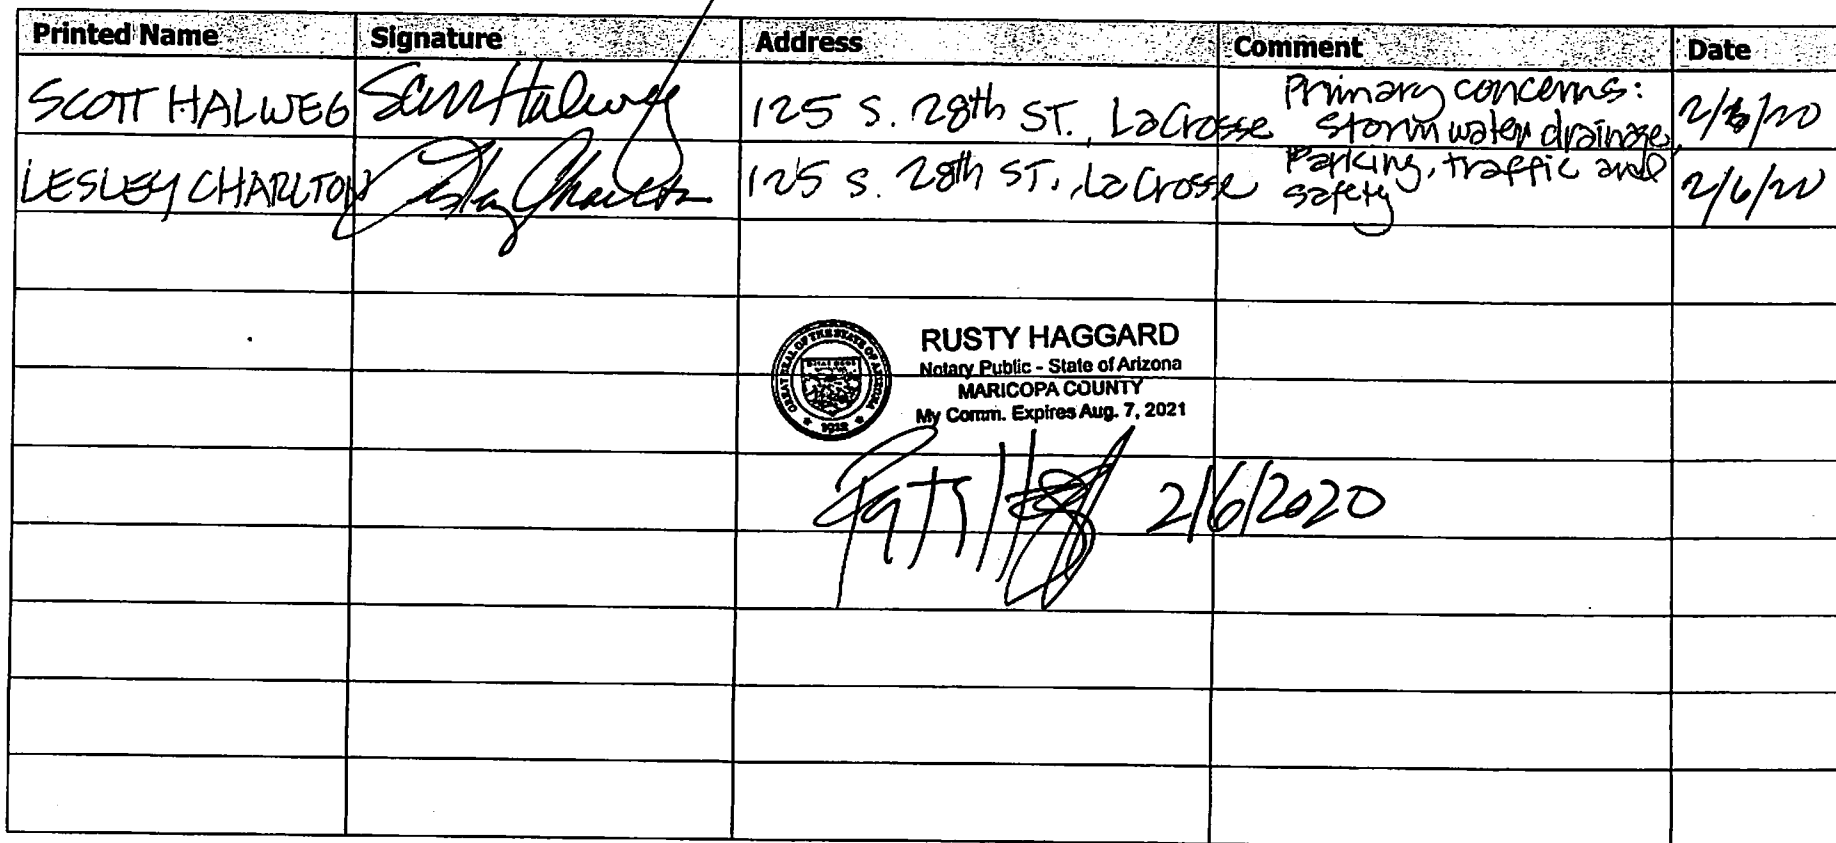 Printed Name Signature Address Comment Date
SCOTT HALWEG Scott Halweg 125 S. 28th ST., LaCrosse Primary concerns: 2/6/20
storm water drainage,
LESLEY CHARLTON Lesley Charlton 125 S. 28th ST., LaCrosse Parking, traffic and 2/6/20
safety
GREAT SEAL OF THE STATE OF ARIZONA
1912
RUSTY HAGGARD
Notary Public - State of Arizona
MARICOPA COUNTY
My Comm. Expires Aug. 7, 2021
2/6/2020